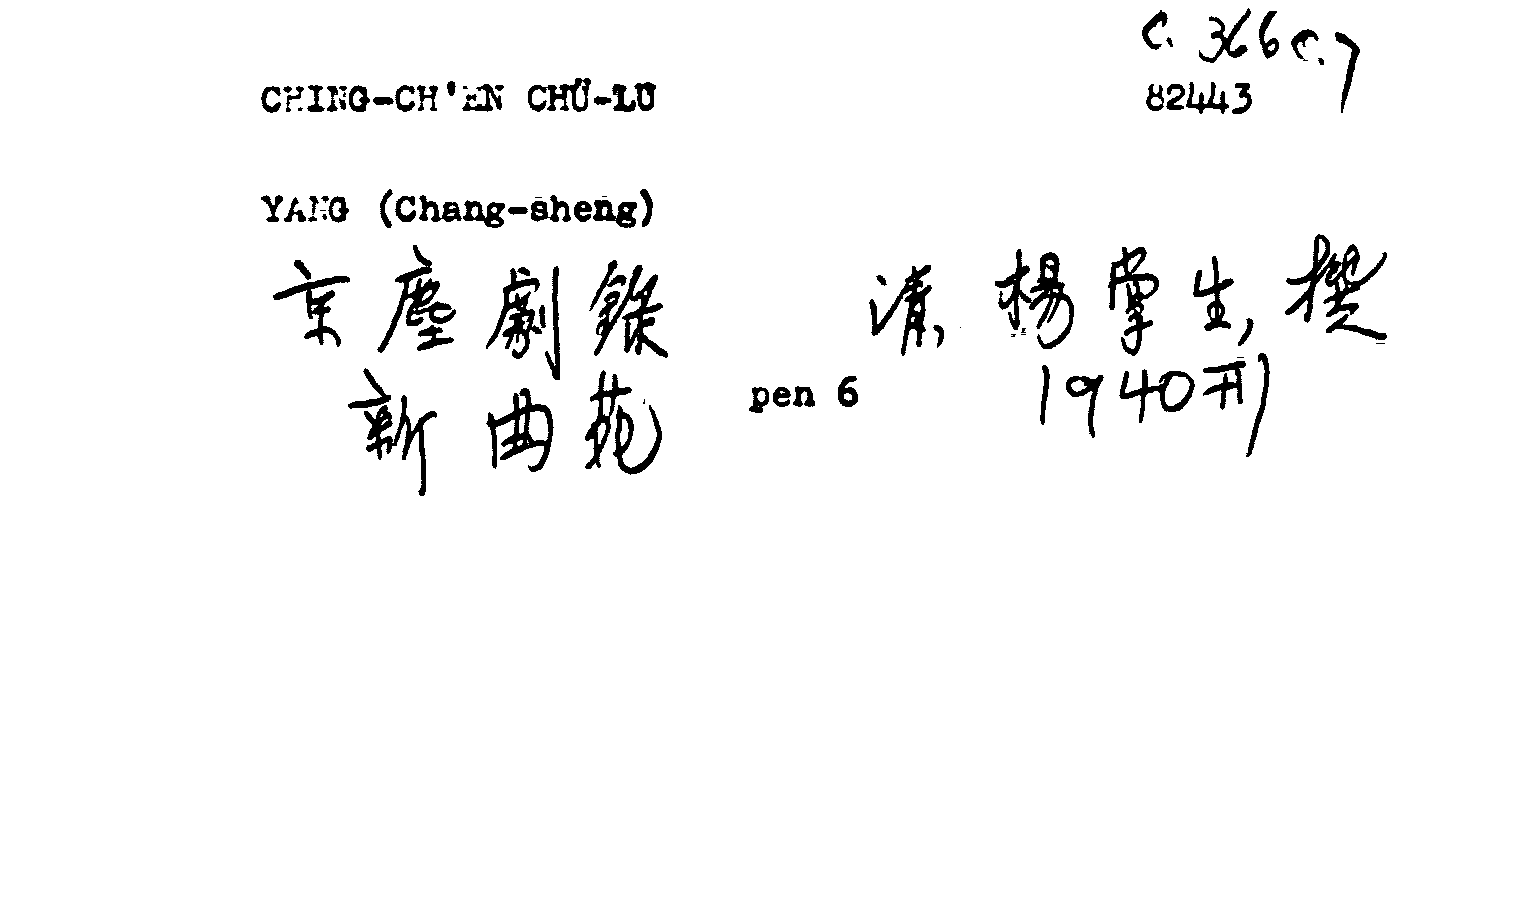 C. 366 C. 7
CHING-CH'EN CHÜ-LU
82443
YANG (Chang-sheng)
京塵劇錄 清, 楊掌生, 撰
新曲苑 pen 6 1940刊